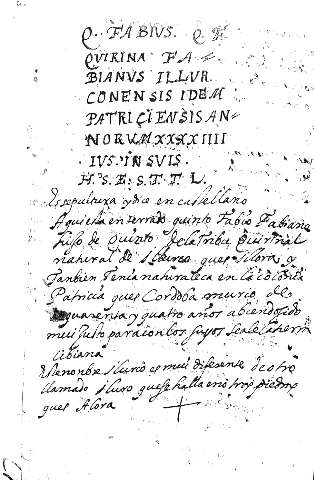 Q. FABIUS. Q F
QVIRINA FA-
BIANVS ILLVR
CONENSIS IDEM
PATRICIENSIS AN-
NORVM XXXXIIII
IVS. IN SVIS
H. S. E. S. T. T. L.
Es sepultura y dice en castellano
Aqui esta enterrado quinto Fabio Fabiano
hijo de Quinto de la tribu Quirina
natural de Illurco ques Illora y
tanbien tenia naturaleca en la colonia
Patricia ques Cordoba murio de
quarenta y quatro años abiendo sido
mui justo para con los suyos seale la tierra
libiana
Este nonbre Ilurco es mui diferente de otro
llamado Iluro que se halla en otras piedras
ques Alora